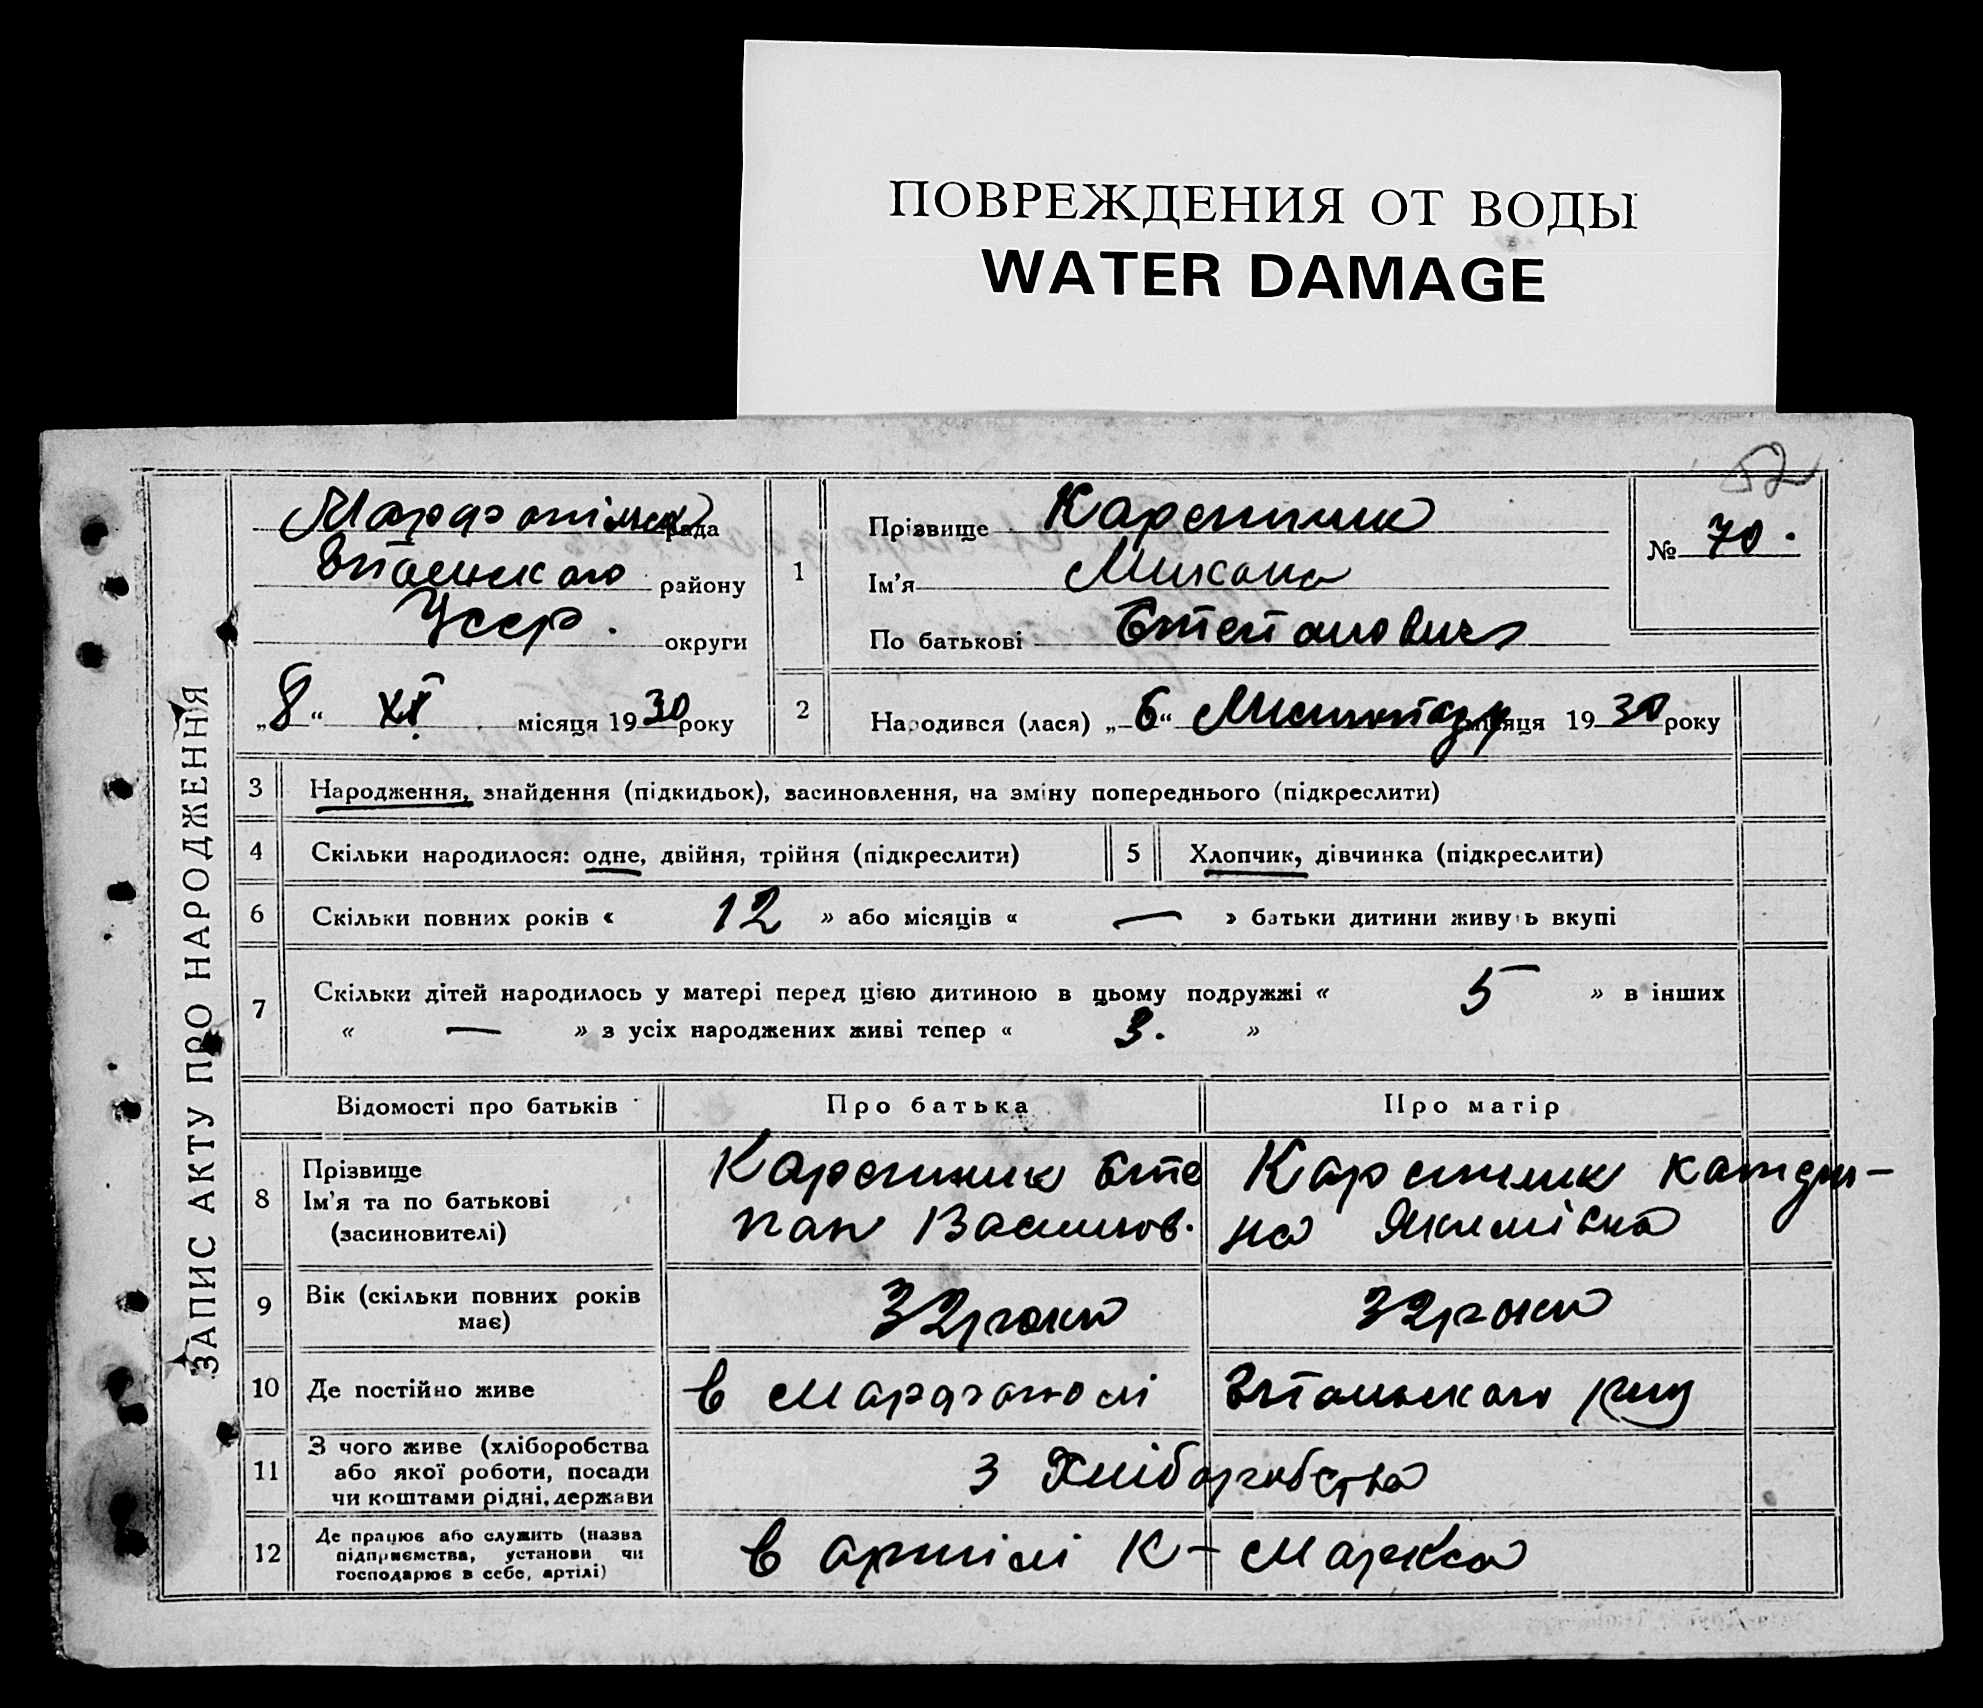 ПОВРЕЖДЕНИЯ ОТ ВОДЫ
WATER DAMAGE
52
рада
району
Усср. округи
„8“ XI місяця 1930 року
1
Прізвище
Ім'я Микола
По батькові Степанович
№ 70.
2
Народився (лася) „6“ Листопаду місяця 1930 року
ЗАПИС АКТУ ПРО НАРОДЖЕННЯ
3 Народження, знайдення (підкидьок), засиновлення, на зміну попереднього (підкреслити)
4 Скільки народилося: одне, двійня, трійня (підкреслити) 5 Хлопчик, дівчинка (підкреслити)
6 Скільки повних років « 12 » або місяців « — » батьки дитини живуть вкупі
7 Скільки дітей народилось у матері перед цією дитиною в цьому подружжі « 5 » в інших
« — » з усіх народжених живі тепер « 3. »
Відомості про батьків Про батька Про матір
8 Прізвище
Ім'я та по батькові
(засиновителі)
Сте
пан Васильов.
Катери-
на Якимівна
9 Вік (скільки повних років
має)
32 роки 32 роки
10 Де постійно живе в Мардаролі району
11 З чого живе (хліборобства
або якої роботи, посади
чи коштами рідні, держави
з Хліборобства
12 Де працює або служить (назва
підприємства, установи чи
господарює в себе, артілі)
в артілі К-Маркса